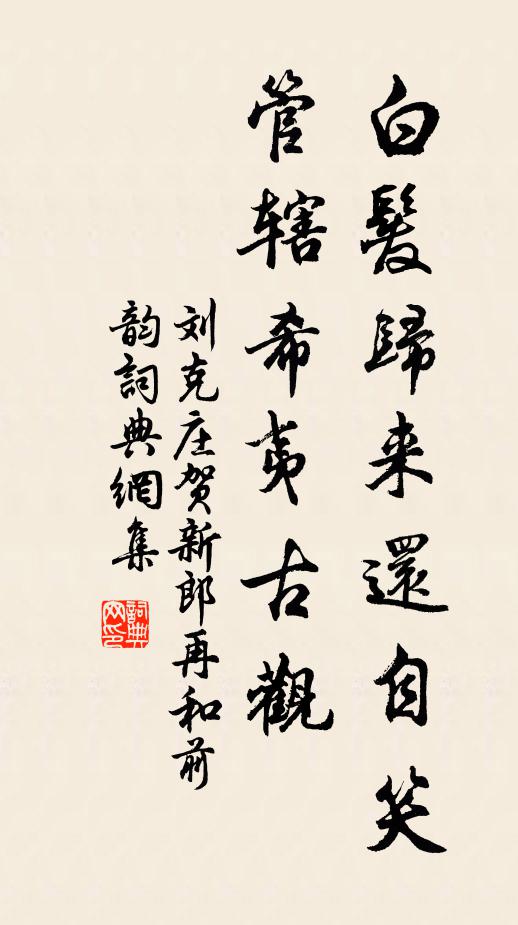 白髮歸来還自笑
管辖希夷古觀
刘克庄贺新郎再和前
韵詞典網集
詞典
网印